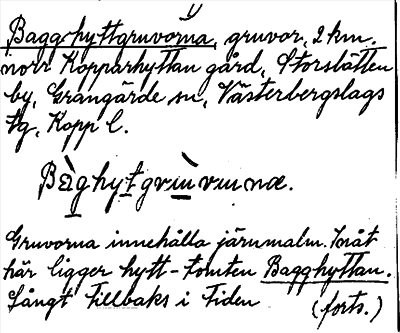 Bagghyttgruvorna, gruvor, 2 km.
norr Kopparhyttan gård, Storslätten
by, Grangärde sn, Västerbergslags
tg, Kopp l.
Bàghytgrùvuṇa.
Gruvorna innehålla järnmalm. Invid
här ligger hytt-tomten Bagghyttan.
Långt tillbaks i tiden (forts.)